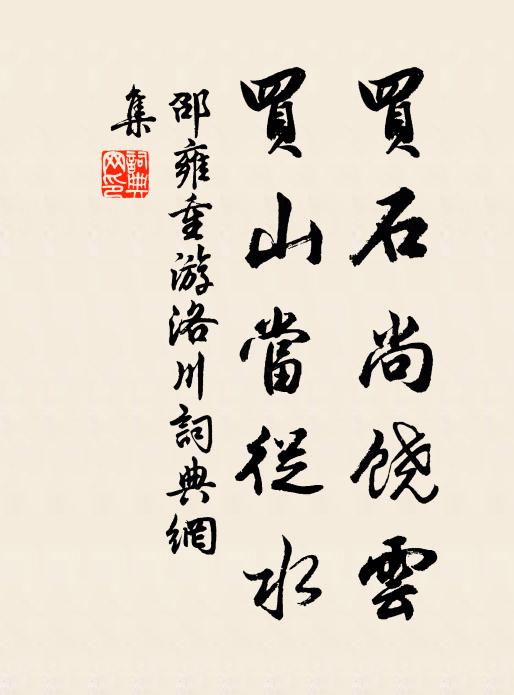 買石尚饶雲
買山當從水
邵雍重游洛川詞典網
集
詞典網印